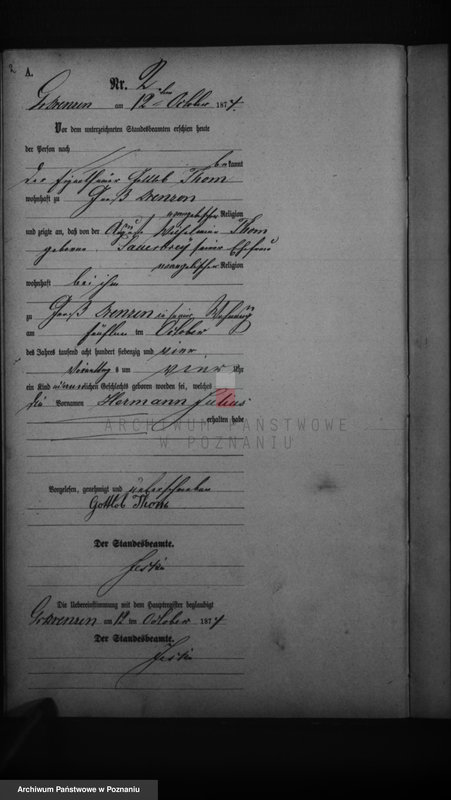 2
A.
Nr. 2
am 12ten October 1874.
Vor dem unterzeichneten Standesbeamten erschien heute
der Person nach
bekannt
der Eigenthümer Gottlob Thom
wohnhaft zu Groß
evangelischer Religion
und zeigte an, daß von der August Wilhelmine Thom
geborne Sauerbrey seiner Ehefrau
evangelischer Religion
wohnhaft bei ihm
zu Groß in seiner Wohnung
am fünften ten October
des Jahres tausend acht hundert siebenzig und vier,
Vormittag s um vier Uhr
ein Kind männlichen Geschlechts geboren worden sei, welches
die Vornamen Hermann Julius
erhalten habe
ARCHIWUM PAŃSTWOWE
W POZNANIU
Vorgelesen, genehmigt und unterschrieben
Gottlob Thom
Der Standesbeamte.
Die Uebereinstimmung mit dem Hauptregister beglaubigt
am 12 ten October 1874
Der Standesbeamte.
Archiwum Państwowe w Poznaniu